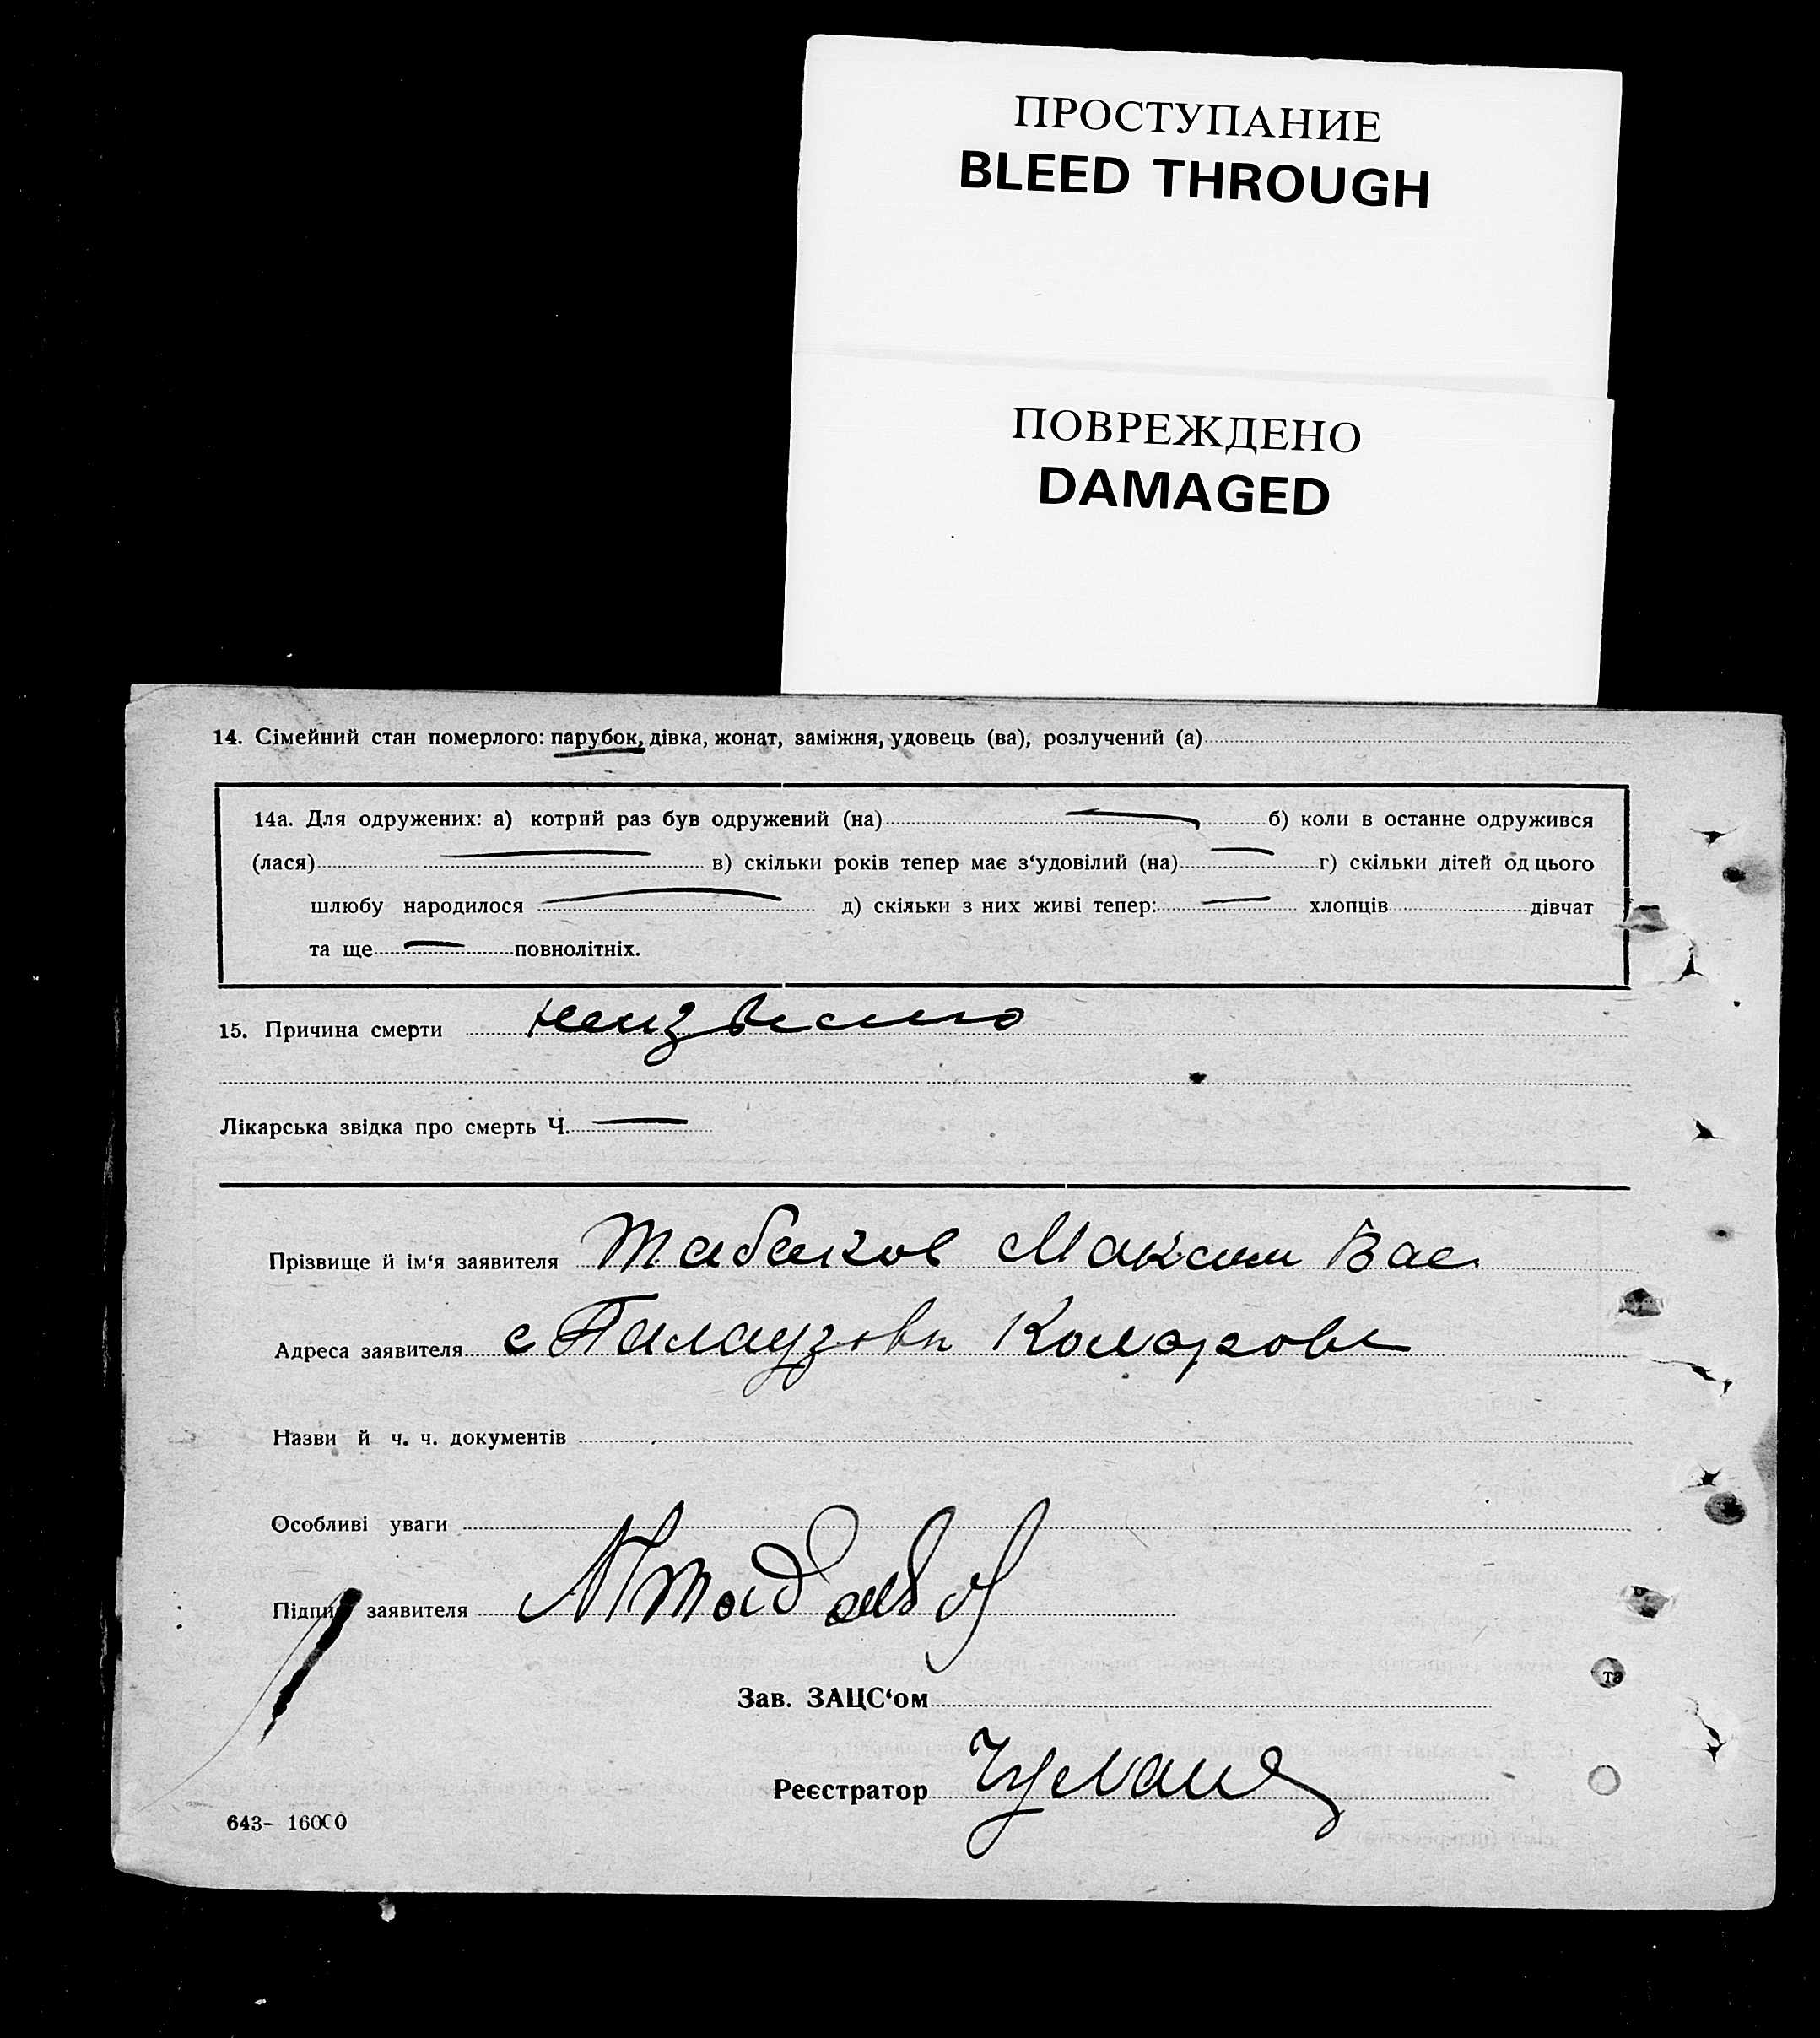 ПРОСТУПАНИЕ
BLEED THROUGH
ПОВРЕЖДЕНО
DAMAGED
14. Сімейний стан померлого: парубок, дівка, жонат, заміжня, удовець (ва), розлучений (а)
14а. Для одружених: а) котрий раз був одружений (на) — б) коли в останне одружився
(лася) — в) скільки років тепер має з‘удовілий (на) — г) скільки дітей од цього
шлюбу народилося — д) скільки з них живі тепер: — хлопців дівчат
та ще — повнолітніх.
15. Причина смерти неизвестно
Лікарська звідка про смерть Ч. —
Прізвище й ім‘я заявителя Табаков Максим Вас.
Адреса заявителя с Палаузовка
Назви й ч. ч. документів
Особливі уваги
Підпис заявителя МТабаков
та
Зав. ЗАЦС‘ом
Реєстратор
643- 16000